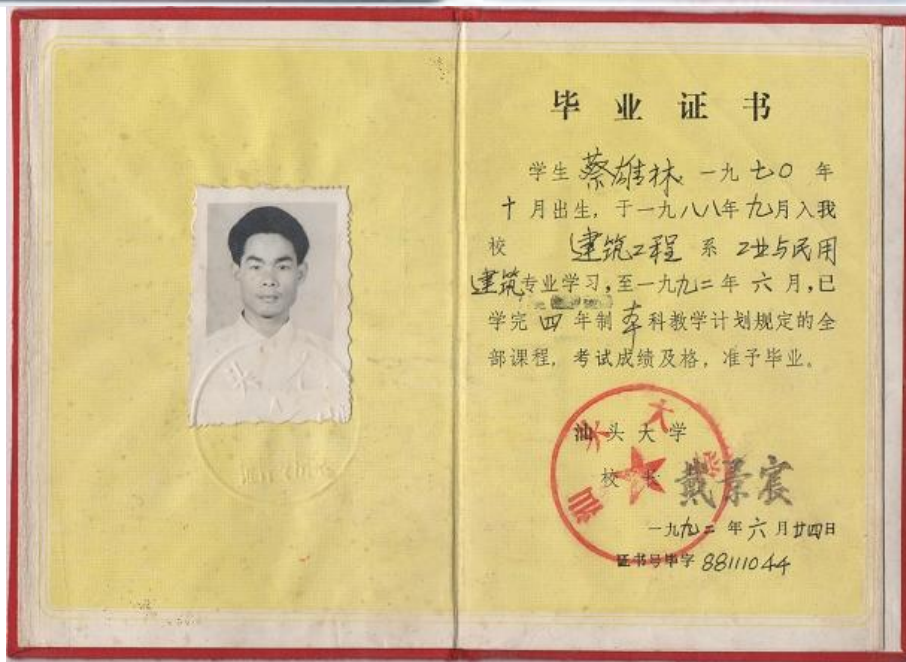 毕业证书
学生 蔡雄林 一九七〇年
十月出生，于一九八八年九月入我
校 建筑工程 系 工业与民用
建筑专业学习，至一九九二年六月，已
学完四年制本科教学计划规定的全
部课程，考试成绩及格，准予毕业。
汕头大学
校长 戴景宸
一九九二年六月廿四日
证书号毕字 88111044
汕头大